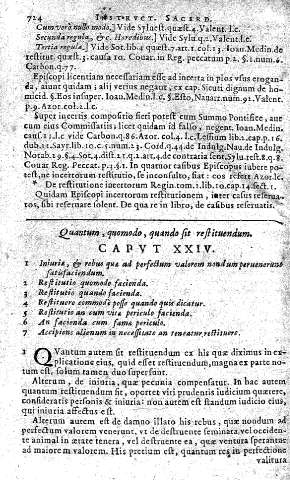 724 INSTRUCT. SACERD.
Cum verò nullo modo.] Vide Sylu. quæst. 4. Valent. l. c.
Secunda regula, &c. Haredione.] Vide Sylu. q. 1. Valent. l. c.
Tertia regula.] Vide Sot. lib. 4. quæst. 7. art. 1. col. 23. Ioan. Medin. de
restitut. quæst. 3. causa 10. Couar. in Reg. peccatum p. 2. §. 1. num. 6.
Carbon. q. 77.
Episcopi licentiam necessariam esse ad incerta in pios vsus eroganda,
aiunt quidam; alij verius negant, ex cap. Sicuti dignum de homicid.
§. Eos insuper. Ioan. Med. l. c. §. Esto, Nauarr. num. 91. Valent.
p. 9. Azor. col. 2. l. c.
Super incertis compositio fieri potest cum Summo Pontifice, aut
cum eius Commissariis: licet quidam id falso, negent. Ioan. Medin.
causa 12. l. c. vide Carbon. q. 86. Azor. col. 4. l. c. Lessium lib. 2. cap. 16.
dub. 12. Sayr. lib. 10. c. 5. num. 23. Cord. q. 44. de Indulg. Nau. de Indulg.
Notab. 29. §. 4. Sot. 4. dist. 21. q. 2. art. 4. de contraria sent. Sylu. rest. 8. q. 8.
Couar. Reg. Peccat. p. 3. §. 1. In quatuor casibus Episcopus iubere potest,
ne incertorum restitutio, se inconsulto, fiat: eos refert Azor. l. c.
De restitutione incertorum Regin. tom. 1. lib. 10. cap. 14. sect. 1.
Quidam Episcopi incertorum restitutionem, inter casus reseruatos,
sibi reseruare solent. De qua re in libro, de casibus reseruatis.
Quantum, quomodo, quando sit restituendum.
CAPVT XXIV.
1 Iniuria, & rebus quæ ad perfectum valorem nondum peruenerunt
satisfaciendum.
2 Restitutio quomodo facienda.
3 Restitutio quando facienda.
4 Restituere commodè posse quando quis dicatur.
5 Restitutio an cum vitæ periculo facienda.
6 An facienda cum fama periculo.
7 Accipiens alienum in necessitate an teneatur restituere.
1 QVantum autem sit restituendum ex his quæ diximus in explicatione
eius, quid esset restituendum, magna ex parte notum
est, solum tamen duo supersunt.
Alterum, de iniuria, quæ pecunia compensatur. In hac autem
quantum restituendum sit, oportet viri prudentis iudicium quærere,
consideratis personis & iniuria: non autem est standum iudicio eius,
qui iniuria affectus est.
Alterum autem est de damno illato his rebus, quæ nondum ad
perfectum valorem venerunt, vt de destruente semina, vel occidente
animal in ætate tenera, vel destruente ea, quæ ventura sperantur
ad maiorem valorem. His pretium est, quantum res in perfectione
valitura